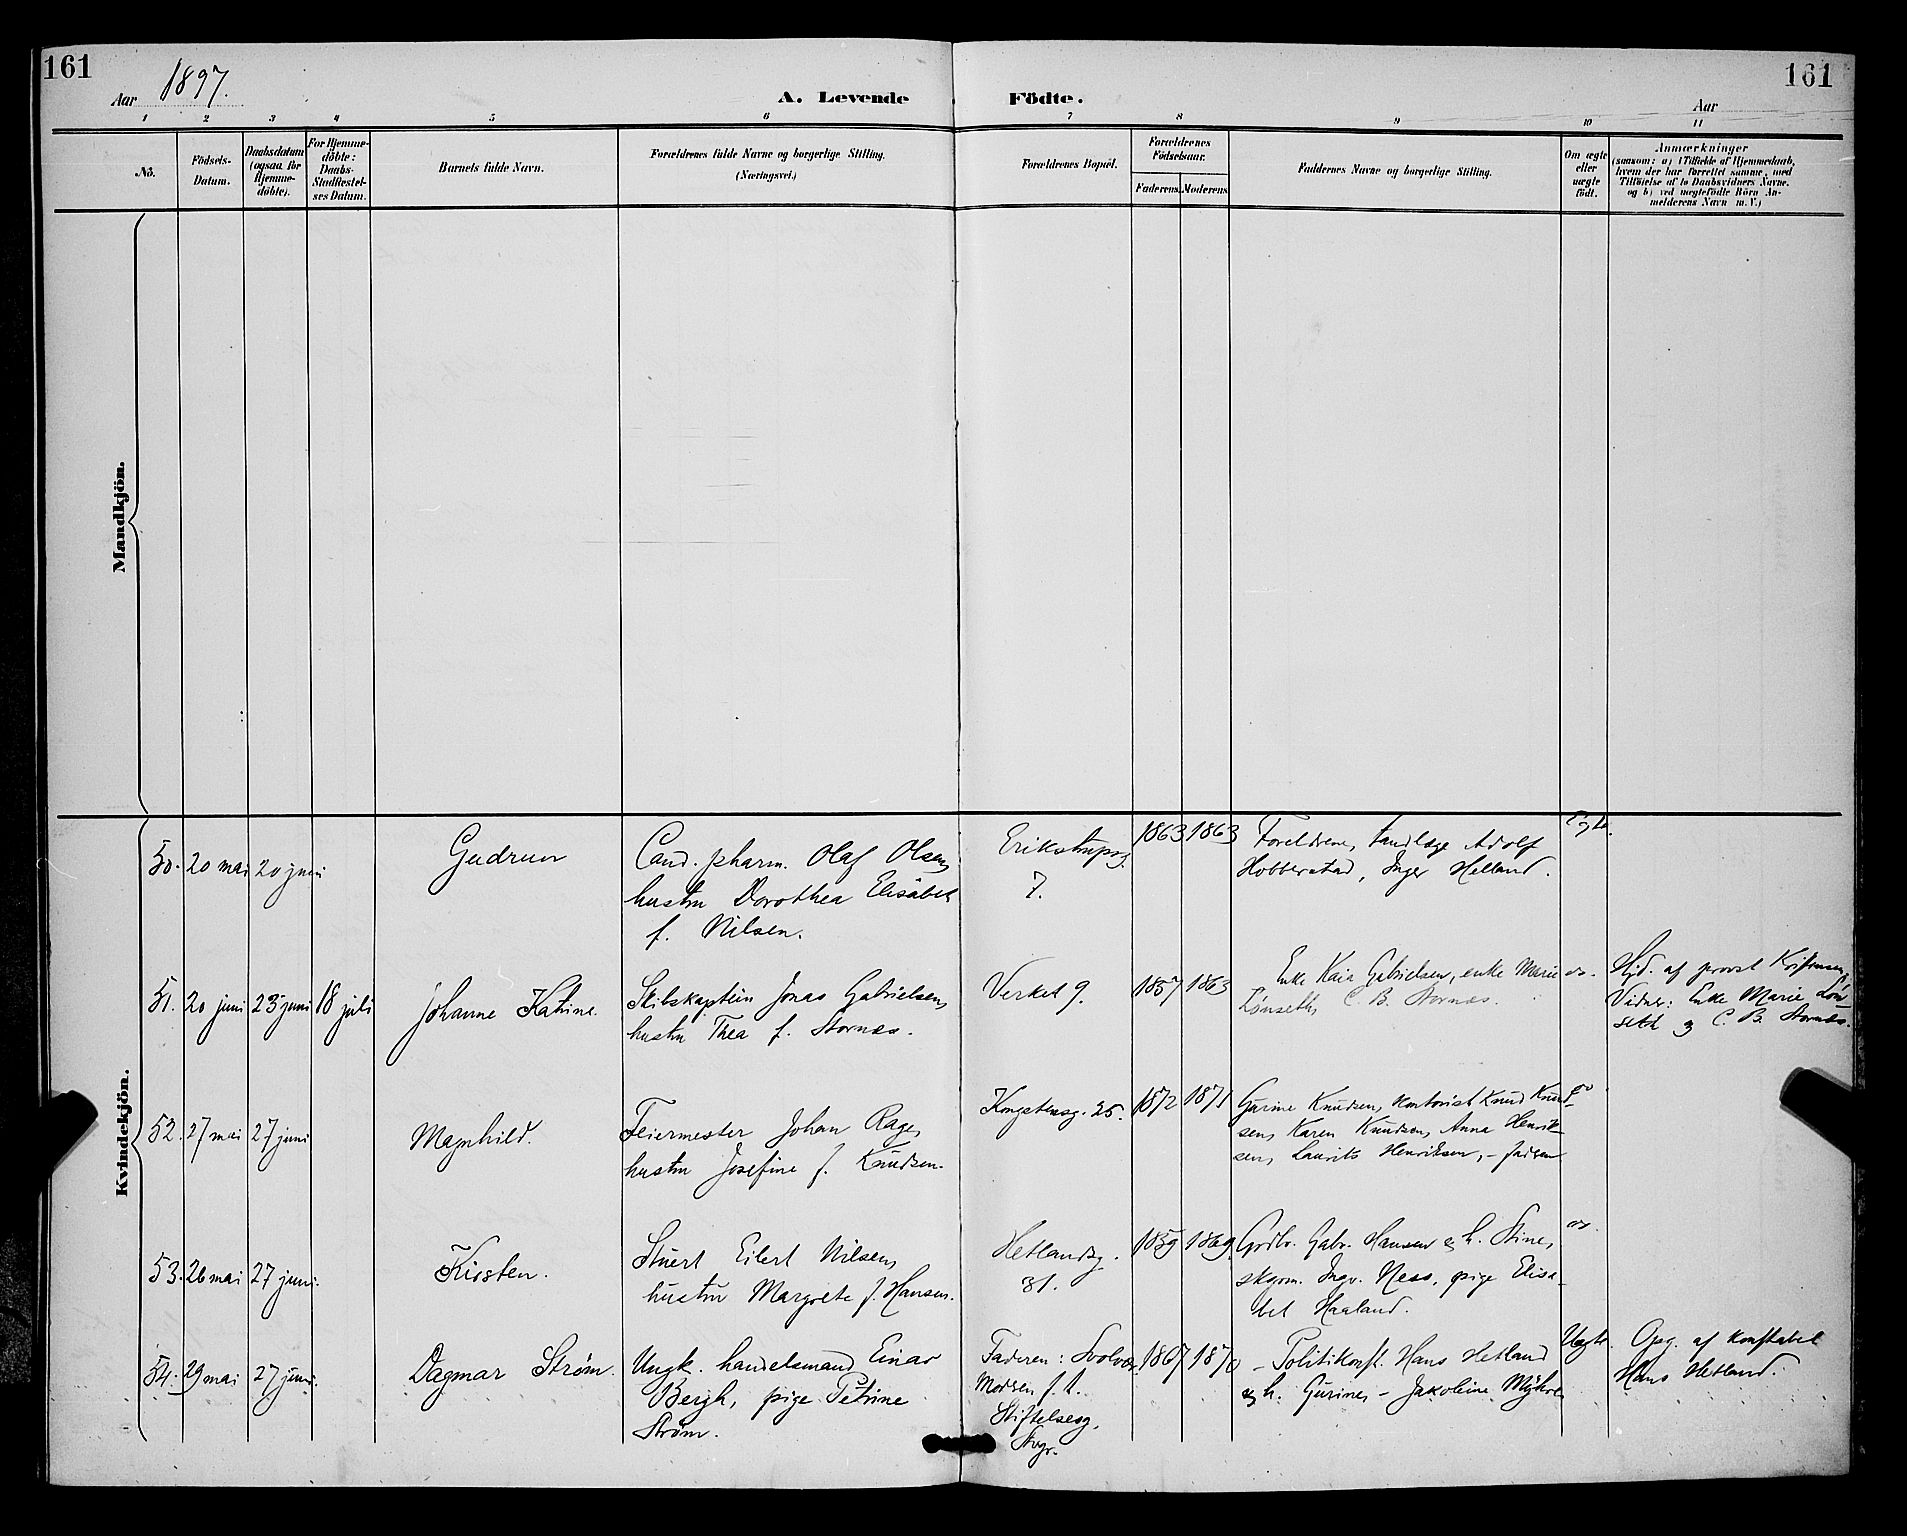 161
161
Aar 1897.
A. Levende Födte.
Aar
1 2 3 4 5 6 7 8 9 10 11
No.
Födsels-
Datum.
Daabsdatum
(ogsaa for
Hjemme-
döbte).
For Hjemme-
döbte:
Daabs-
Stadfæstel-
ses Datum.
Barnets fulde Navn.
Forældrenes fulde Navne og borgerlige Stilling.
(Næringsvei.)
Forældrenes Bopæl.
Forældrenes
Födselsaar.
Faderens. Moderens.
Faddernes Navne og borgerlige Stilling.
Om ægte
eller
uægte
födt.
Anmærkninger
(saasom: a) i Tilfælde af Hjemmedaab,
hvem der har forrettet samme, med
Tilföielse af to Daabsvidners Navne.
og b) ved uægtefödte Börn An-
melderens Navn m. V.)
Mandkjön.
Kvindekjön.
50. 20 mai 20 juni
Gudrun
Cand. pharm. Olaf Olsen,
hustru Dorothea Elisabet
f. Nilsen.
Erikstrupsg.
7.
1863 1863
Foreldrene, tandlæge Adolf
Hobberstad, Inger Helland.
Egte.
51. 20 juni 23 juni 18 juli
Johanne Katrine.
Skibskaptein Jonas Gabrielsen,
hustru Thea f. Stornæs.
Verket 9.
1857 1863
Enke Kaia Gabrielsen, enke Marie
Lønseth, C. B. Stornæs.
do.
Hjd. af provst
Vidner: Enke Marie Løn-
seth og C. B. Stornæs.
52. 27 mai 27 juni
Magnhild.
Feiermester Johan Rage,
hustru Josefine f. Knudsen.
Kongstensg. 25.
1872 1871
Gurine Knudsen, kontorist Knud Knud-
sen, Karen Knudsen, Anna Henrik-
sen, Laurits Henriksen, - faderen
do
53. 26 mai 27 juni.
Kirsten.
Stuert Eilert Nilsen,
hustru Margrete f. Hansen.
Hetlandsg.
31.
1859 1869.
Grdbr. Gabr. Hansen & h. Stine,
skgom. Ingv. Ness, pige Elisa-
bet Haaland.
do.
54. 29 mai 27 juni.
Dagmar Strøm.
Ungk. handelsmand Einar
Bergh, pige Petrine
Strøm.
Faderen: Svolvær.
Moderen f. t.
Stiftelsesg,
Stvgr.
1867 1870
- Politikonst. Hans Hetland
& h. Gurine, - Jakobine Myhre
Uegte.
Opg. af konstabel
Hans Hetland.